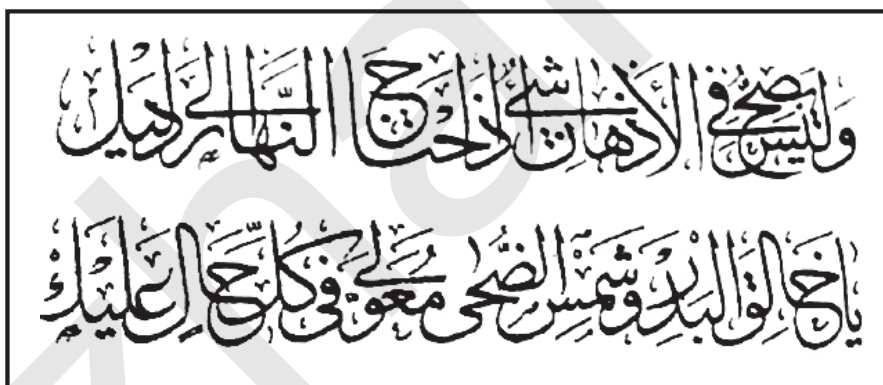 وَلَيْسَ يَصِحُّ فِي الأَذْهَانِ شَيْءٌ إِذَا احْتَاجَ النَّهَارُ إِلَى دَلِيلِ
يَا خَالِقَ الْبَدْرِ وَشَمْسِ الضُّحَى مُعَوَّلِي فِي كُلِّ حَالٍ عَلَيْكْ